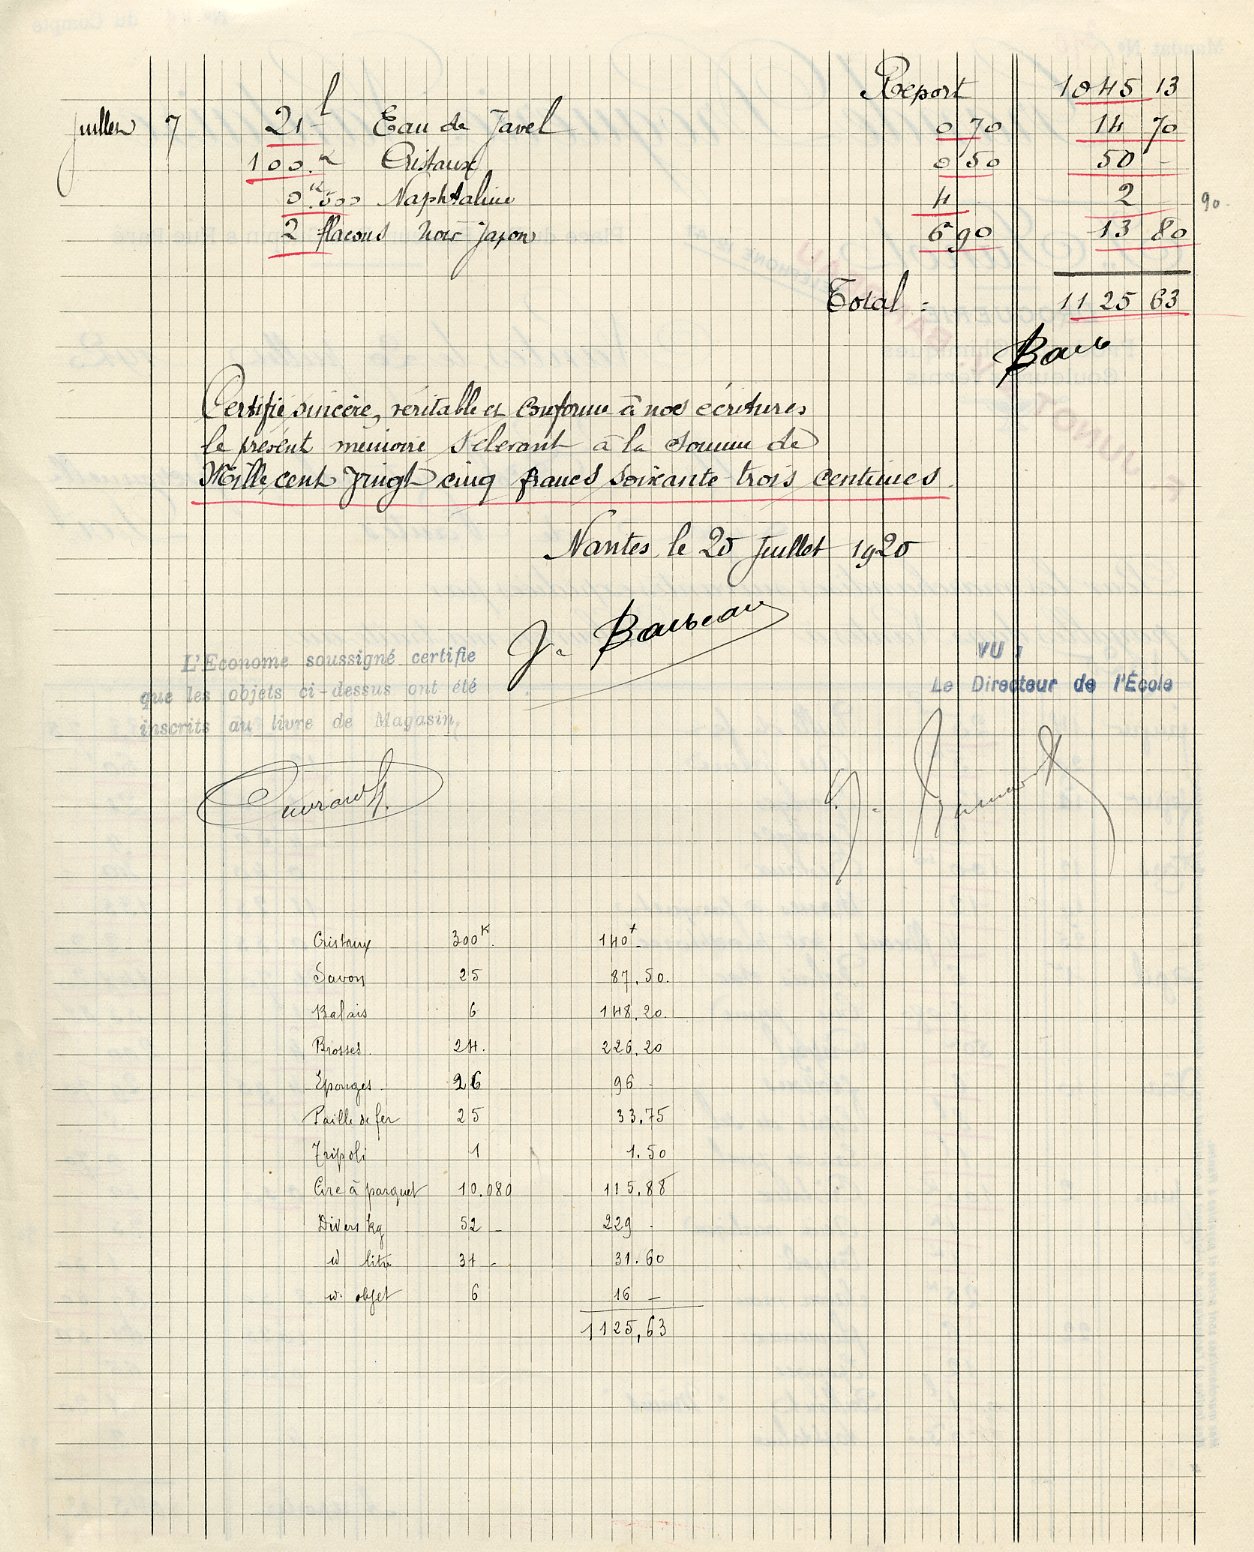 Report 1045 13
Juillet 7 21 l Eau de Javel 0 70 14 70
100 K Cristaux 0 50 50 -
0 K 500 Naphtaline 4 2 90.
2 flacons Noir Japon 6 90 13 80
Total = 1125 63
Certifié sincère, véritable et conforme à nos écritures
le présent mémoire s'élevant à la somme de
Mille cent vingt cinq francs soixante trois centimes.
Nantes, le 20 Juillet 1920
J. Barbeau
L'Econome soussigné certifie
que les objets ci-dessus ont été
inscrits au livre de Magasin,
VU :
Le Directeur de l'École
Cristaux 300 K. 140 f
Savon 25 87.50.
Balais 6 148.20
Brosses. 24. 226.20
Eponges. 26 96
Paille de fer 25 33.75
Tripoli 1 1.50
Cire à parquet 10.080 115.88
Divers kg 52 - 229
id litre 31 - 31.60
id. objet 6 16 -
1125,63